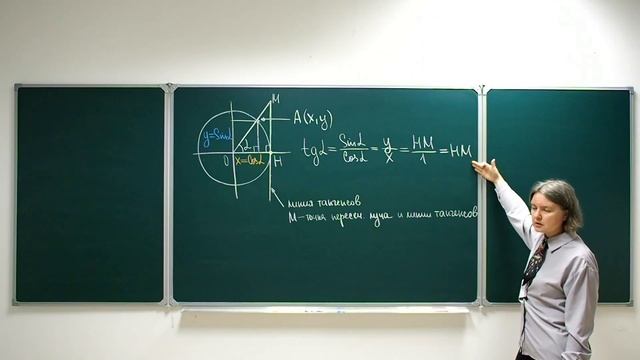 M
A(x,y)
y=Sinα
α
O
x=Cosα
H
tgα = Sinα/Cosα = y/x = HM/1 = HM
линия тангенсов
M – точка пересеч. луча и линии тангенсов